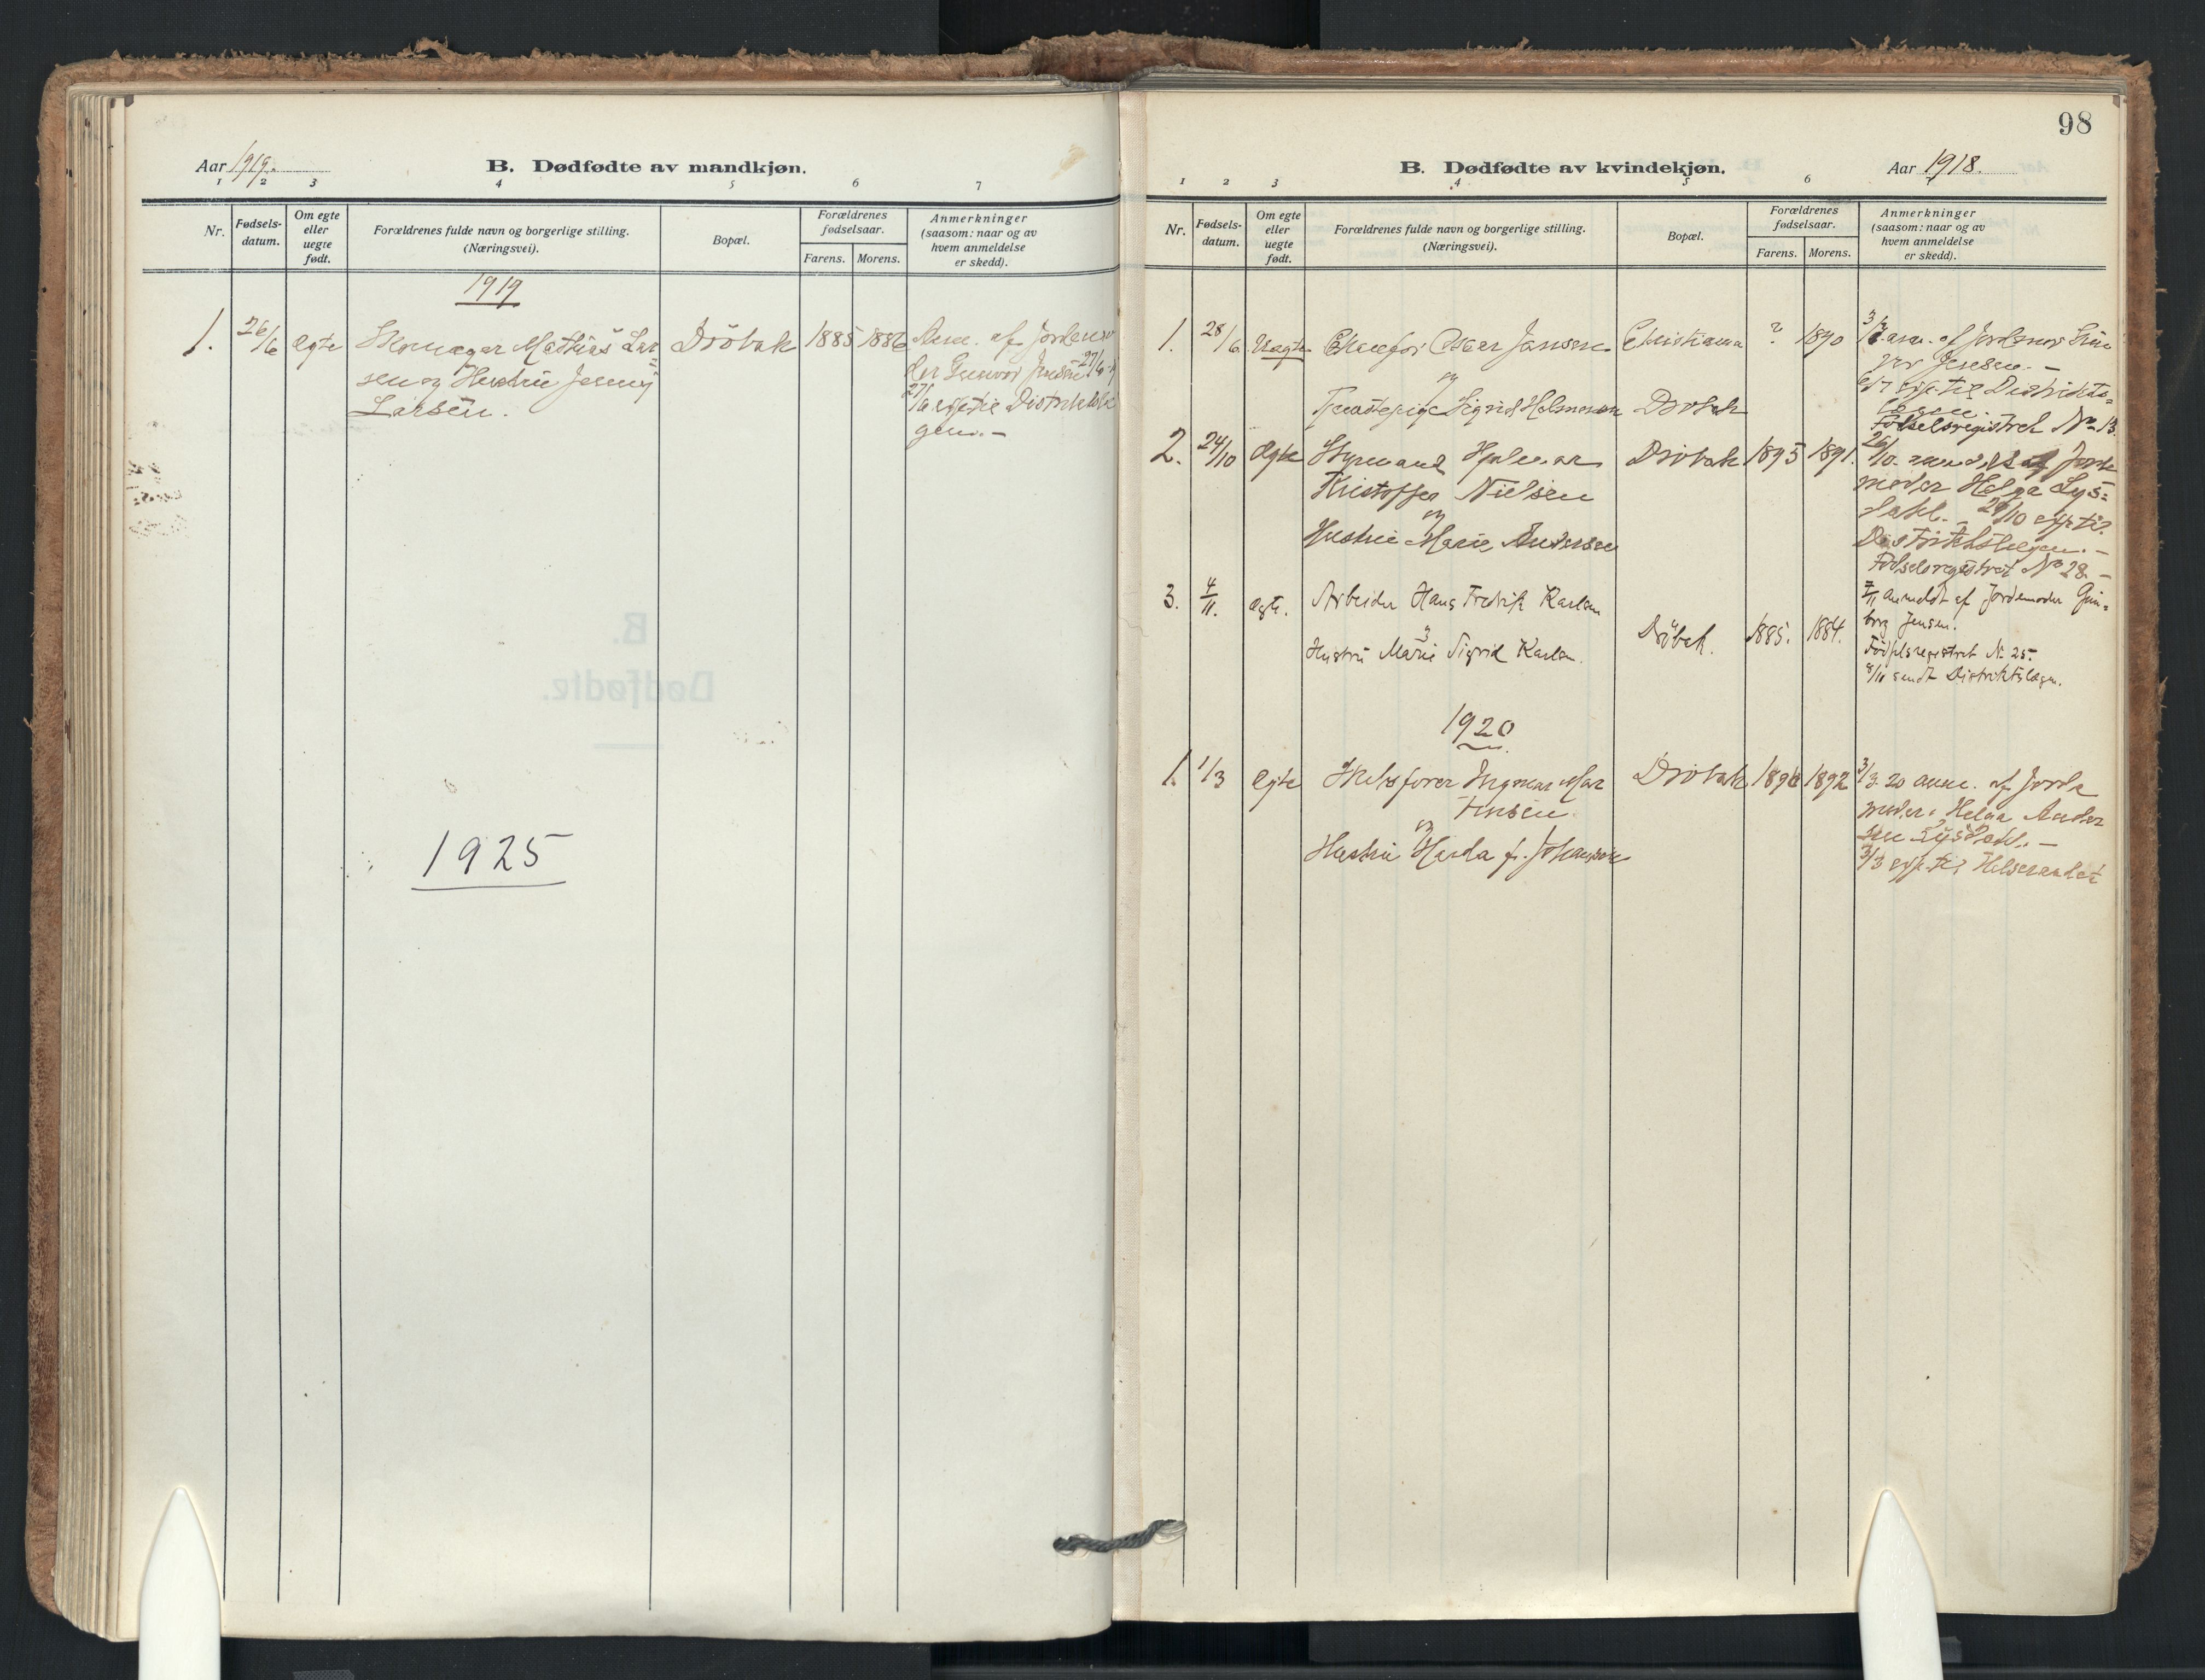 Aar 1919. B. Dødfødte av mandkjøn.
1 2 3 4 5 6 7
Nr. Fødsels-datum. Om egte eller uegte født. Forældrenes fulde navn og borgerlige stilling. (Næringsvei). Bopæl. Forældrenes fødselsaar. Farens. Morens. Anmerkninger (saasom: naar og av hvem anmeldelse er skedd).
1919
1. 26/6 Egte Skomager Mathias Lar= Dröbak 1885 1886 Anm. af Jordemo
sen og Hustru Jenny der Gunvor Jensen 27/6-19
Larsen. 27/6 Distriktslæ
gen. –
1925
98
B. Dødfødte av kvindekjøn. Aar 1918.
1 2 3 4 5 6 7
Nr. Fødsels-datum. Om egte eller uegte født. Forældrenes fulde navn og borgerlige stilling. (Næringsvei). Bopæl. Forældrenes fødselsaar. Farens. Morens. Anmerkninger (saasom: naar og av hvem anmeldelse er skedd).
1. 28/6 Uegte Chauffør Oscar Jansen Christiania ? 1890 3/7 anm. af Jordemor Gun
og vor Jensen. –
Tjenestepige Sigrid Halmesen Dröbak Distrikts=
lægen.
Fødselsregistret No 13.
2. 24/10 Egte Styrmand Hjalmar Dröbak 1895 1891. 26/10. anmeldt af Jorde
Kristoffer Nielsen moder Helga Lys=
og dahl. – 29/10
Hustru Marie Andersen Distriktslægen. –
Fødselsregistret No 28. –
3. 4/11. Egte. Arbeider Hans Fredrik Karlsen 7/11 anmeldt af Jordemoder Gun=
og Dröbak. 1885. 1884. borg Jensen.
Hustru Marie Sigrid Karlsen. Fødselsregistret No 25.
8/11 sendt Distriktslægen.
1920
1. 1/3 Egte Ingmar Mar Dröbak 1892 3/3 20 anm. af Jorde
tinsen. moder Helga Ander
og sen Lysdahl. –
Hustru Harda f. Johansen 3/3 Helseraadet